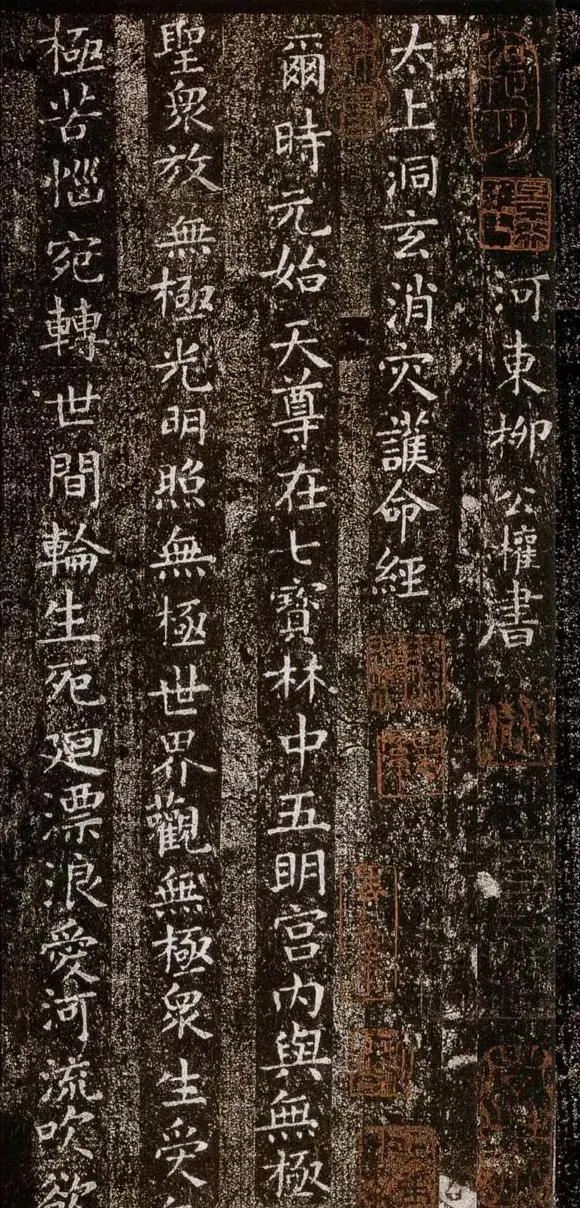 河東柳公權書
太上洞玄消灾護命經
爾時元始天尊在七寶林中五明宫内與無極
聖衆放無極光明照無極世界觀無極衆生受
極苦惱宛轉世間輪生死廻漂浪愛河流吹欲